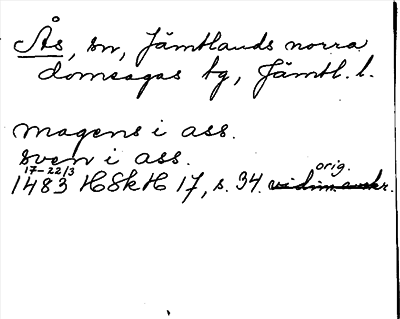 Ås, sn, Jämtlands norra
domsagas tg, Jämtl. l.
magens i ass.
sven i ass.
17-22/3
1483 HSkH 17, s. 34. vidim. avskr.
orig.